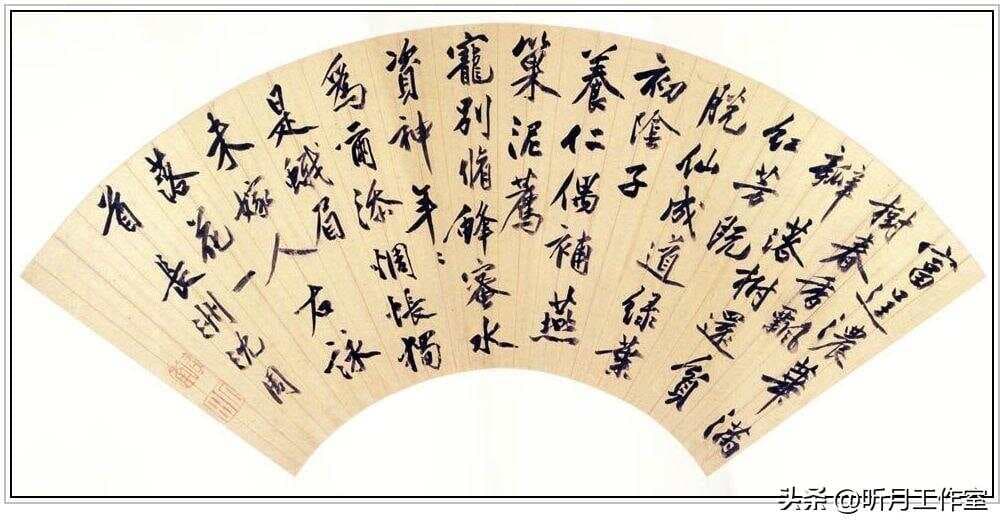 富逞濃華滿
樹春香飄
瓣落樹還貧
紅芳既
脫仙成道綠葉
初陰子
養仁偶補燕
巢泥薦
寵別脩蜂蜜水
資神年〻
為爾添惆悵獨
是蛾眉
未嫁人右詠
落花一
首長洲沈周
头条 @听月工作室